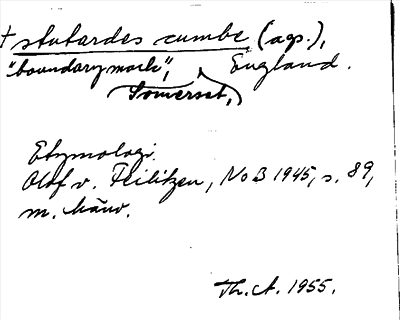 + stutardes cumbe (ags.),
"boundary mark", England.
Somerset,
Etymologi.
Olof v. Feilitzen, NoB 1945, s. 89,
m. hänv.
Th. A. 1955.